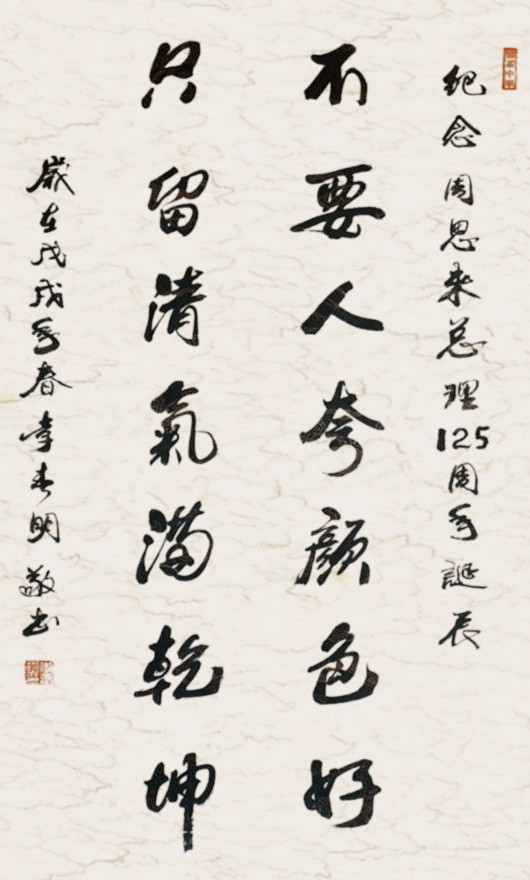 纪念周恩来总理125周年誕辰
不要人夸颜色好
只留清氣满乾坤
歲在戊戌年春李春明敬书